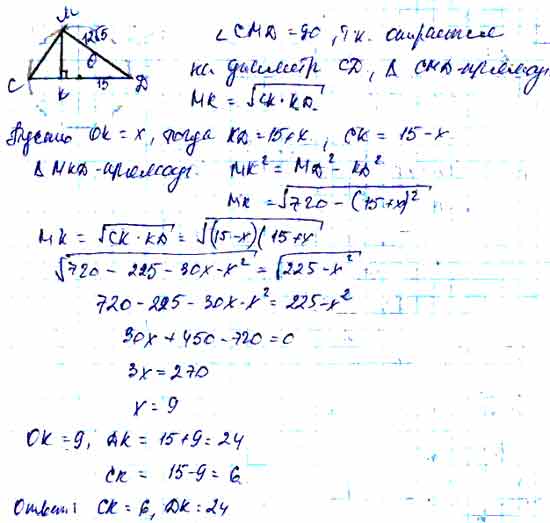 M
12√5
O
C
K
15
D
∠CMD = 90, т.к. опирается
на диаметр CD, Δ CMD - прямоуг.
MK = √CK · KD
Пусть OK = x, тогда KD = 15 + x, CK = 15 - x
Δ MKD - прямоуг. MK² = MD² - KD²
MK = √720 - (15 + x)²
MK = √CK · KD = √(15 - x)(15 + x
√720 - 225 - 30x - x² = √225 - x²
720 - 225 - 30x - x² = 225 - x²
30x + 450 - 720 = 0
3x = 270
x = 9
OK = 9, DK = 15 + 9 = 24
CK = 15 - 9 = 6
Ответ: CK = 6, DK = 24